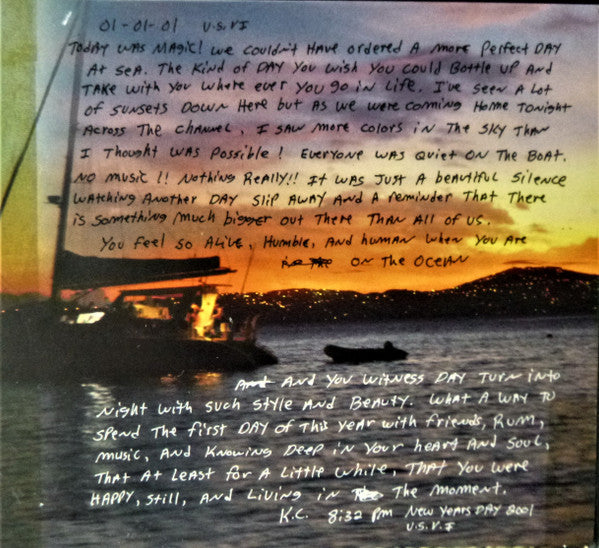 01-01-01 U.S.V.I
Today was Magic! We couldn't have ordered a more perfect day
at sea. The kind of day you wish you could bottle up and
take with you where ever you go in life. I've seen a lot
of sunsets down here but as we were comming home tonight
across the channel, I saw more colors in the sky than
I thought was possible! Everyone was quiet on the boat.
No music!! Nothing really!! It was just a beautiful silence
watching another day slip away and a reminder that there
is something much bigger out there than all of us.
You feel so alive, humble, and human when you are
on the ocean
and you witness day turn into
night with such style and beauty. What a way to
spend the first day of this year with friends, rum,
music, and knowing deep in your heart and soul,
that at least for a little while, that you were
happy, still, and living in the moment.
K.C. 8:32 pm New Years Day 2001
U.S.V.I